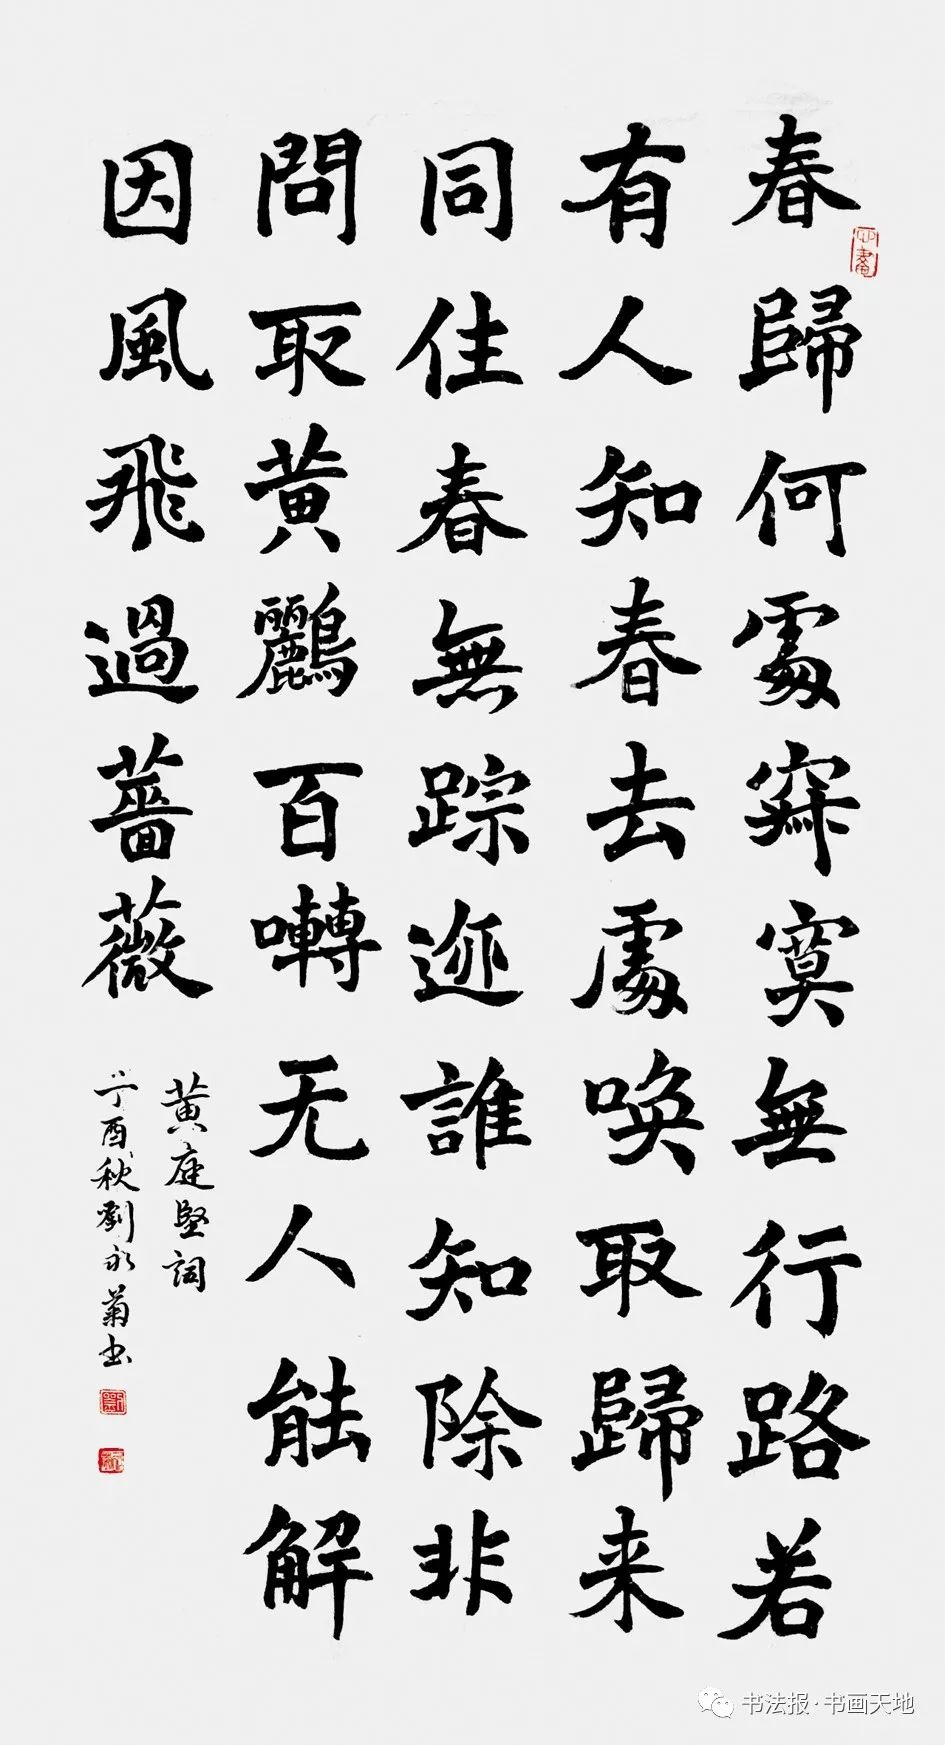 春歸何處寂寞無行路若
有人知春去處喚取歸来
同住春無踪迹誰知除非
問取黄鸝百囀无人能解
因風飛過薔薇
黄庭堅詞
丁酉秋劉永菊书
书法报·书画天地